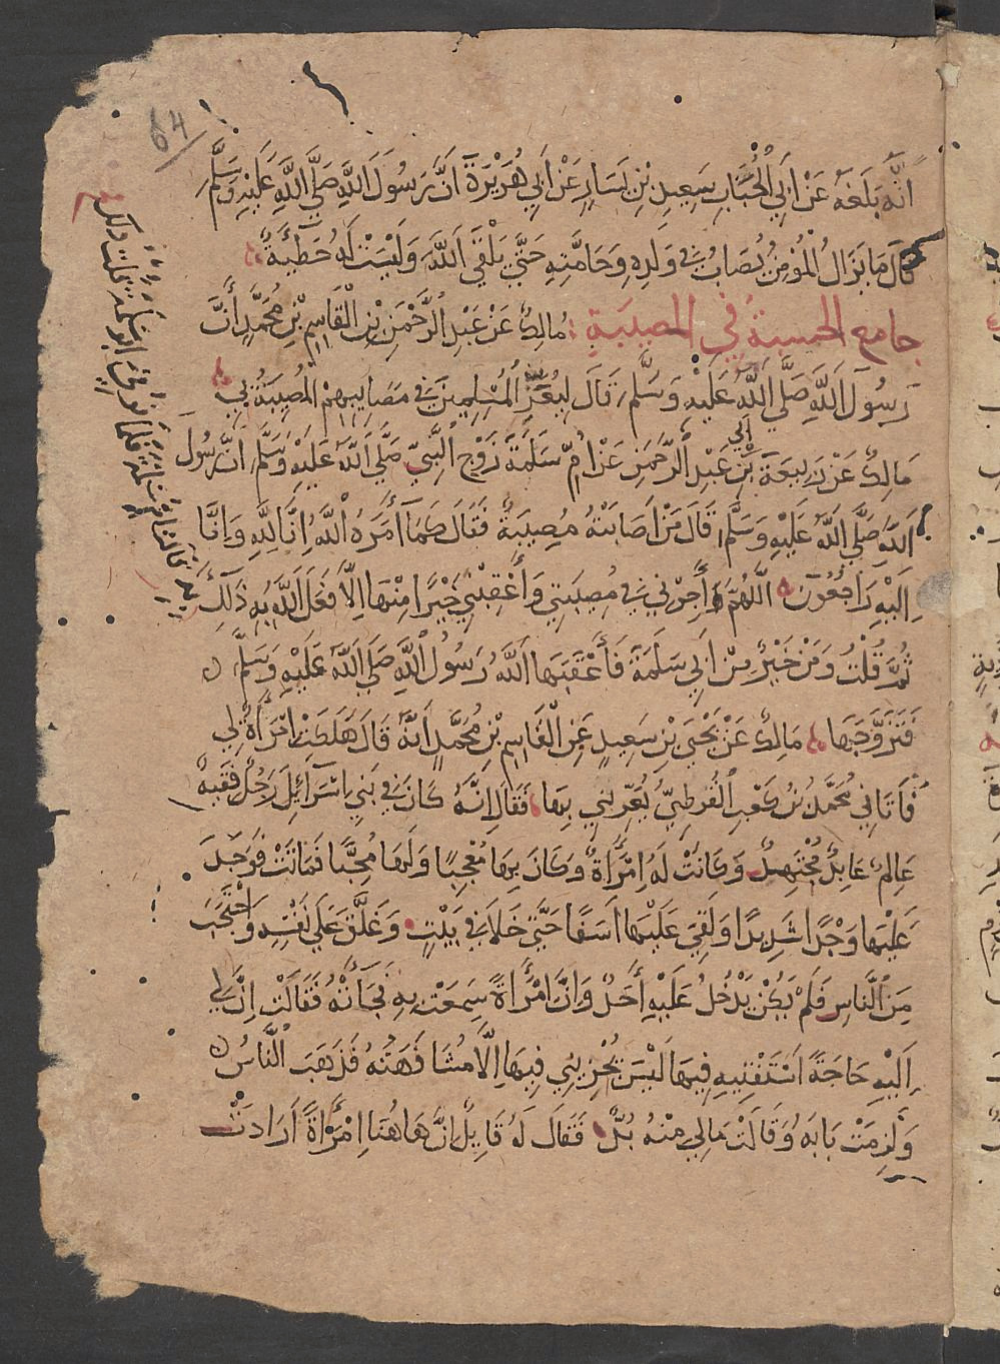 64
أَنَّهُ بَلَغَهُ عَنْ أَبِي الْحُبَابِ سَعِيدِ بْنِ يَسَارٍ عَنْ أَبِي هُرَيْرَةَ أَنَّ رَسُولَ اللَّهِ صَلَّى اللَّهُ عَلَيْهِ وَسَلَّمَ
قَالَ مَا يَزَالُ الْمُؤْمِنُ يُصَابُ فِي وَلَدِهِ وَحَامَّتِهِ حَتَّى يَلْقَى اللَّهَ وَلَيْسَتْ لَهُ خَطِئَةٌ
جامع الحسبة في المصيبة مَالِكٌ عَنْ عَبْدِ الرَّحْمَنِ بْنِ الْقَاسِمِ بْنِ مُحَمَّدٍ أَنَّ
رَسُولَ اللَّهِ صَلَّى اللَّهُ عَلَيْهِ وَسَلَّمَ قَالَ لِيُعَزِّ الْمُسْلِمِينَ فِي مَصَايِبِهِمْ الْمُصِيبَةُ بِي
مَالِكٌ عَنْ رَبِيعَةَ بْنِ أبي عَبْدِ الرَّحْمَنِ عَنْ أُمِّ سَلَمَةَ زَوْجِ النَّبِيِّ صَلَّى اللَّهُ عَلَيْهِ وَسَلَّمَ أَنَّ رَسُولَ
اللَّهِ صَلَّى اللَّهُ عَلَيْهِ وَسَلَّمَ قَالَ مَنْ أَصَابَتْهُ مُصِيبَةٌ فَقَالَ كَمَا أَمَرَهُ اللَّهُ إِنَّا لِلَّهِ وَإِنَّا
إِلَيْهِ رَاجِعُونَ اللَّهُمَّ أْجُرْنِي فِي مُصِيبَتِي وَأَعْقِبْنِي خَيْرًا مِنْهَا إِلَّا فَعَلَ اللَّهُ بِهِ ذَلِكَ
ثُمَّ قُلْتُ وَمَنْ خَيْرٌ مِنْ أَبِي سَلَمَةَ فَأَعْقَبَهَا اللَّهُ رَسُولُ اللَّهِ صَلَّى اللَّهُ عَلَيْهِ وَسَلَّمَ
فَتَزَوَّجَهَا مَالِكٌ عَنْ يَحْيَى بْنِ سَعِيدٍ عَنِ الْقَاسِمِ بْنِ مُحَمَّدٍ أَنَّهُ قَالَ هَلَكَتْ امْرَأَةٌ لِي
فَأَتَانِي مُحَمَّدُ بْنُ كَعْبِ الْقُرَظِيُّ يُعَزِّينِي بِهَا فَقَالَ إِنَّهُ كَانَ فِي بَنِي إِسْرَائِيلَ رَجُلٌ فَقِيهٌ
عَالِمٌ عَابِدٌ مُجْتَهِدٌ وَكَانَتْ لَهُ امْرَأَةٌ وَكَانَ بِهَا مُعْجَبًا وَلَهَا مُحِبًّا فَمَاتَتْ فَوَجَدَ
عَلَيْهَا وَجْدًا شَدِيدًا وَلَقِيَ عَلَيْهَا أَسَفًا حَتَّى خَلَا فِي بَيْتٍ وَغَلَّقَ عَلَى نَفْسِهِ وَاحْتَجَبَ
مِنَ النَّاسِ فَلَمْ يَكُنْ يَدْخُلُ عَلَيْهِ أَحَدٌ وَإِنَّ امْرَأَةً سَمِعَتْ بِهِ فَجَاءَتْهُ فَقَالَتْ إِنَّ لِي
إِلَيْهِ حَاجَةً أَسْتَفْتِيهِ فِيهَا لَيْسَ يُجْزِينِي فِيهَا إِلَّا مُشَافَهَتُهُ فَذَهَبَ النَّاسُ
وَلَزِمَتْ بَابَهُ وَقَالَتْ مَالِي مِنْهُ بُدٌّ فَقَالَ لَهُ قَايِلٌ إِنَّ هَاهُنَا امْرَأَةً أَرَادَتْ
قالت أم سلمة فلما توفي أبو سلمة قلت ذلك